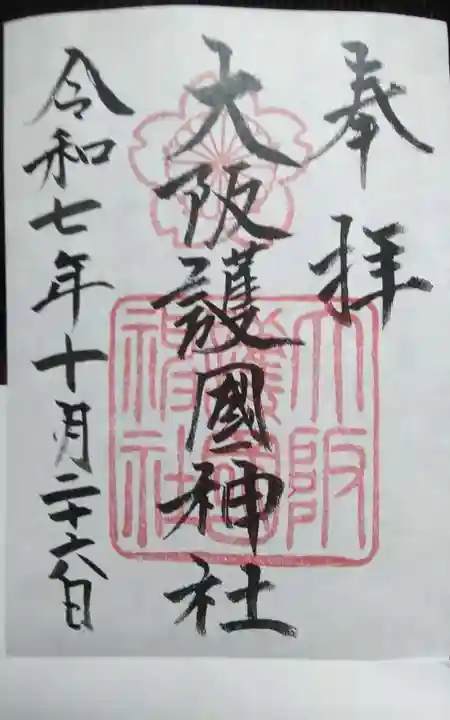 奉拝
大阪護國神社
令和七年十月二十六日
大阪護國神社